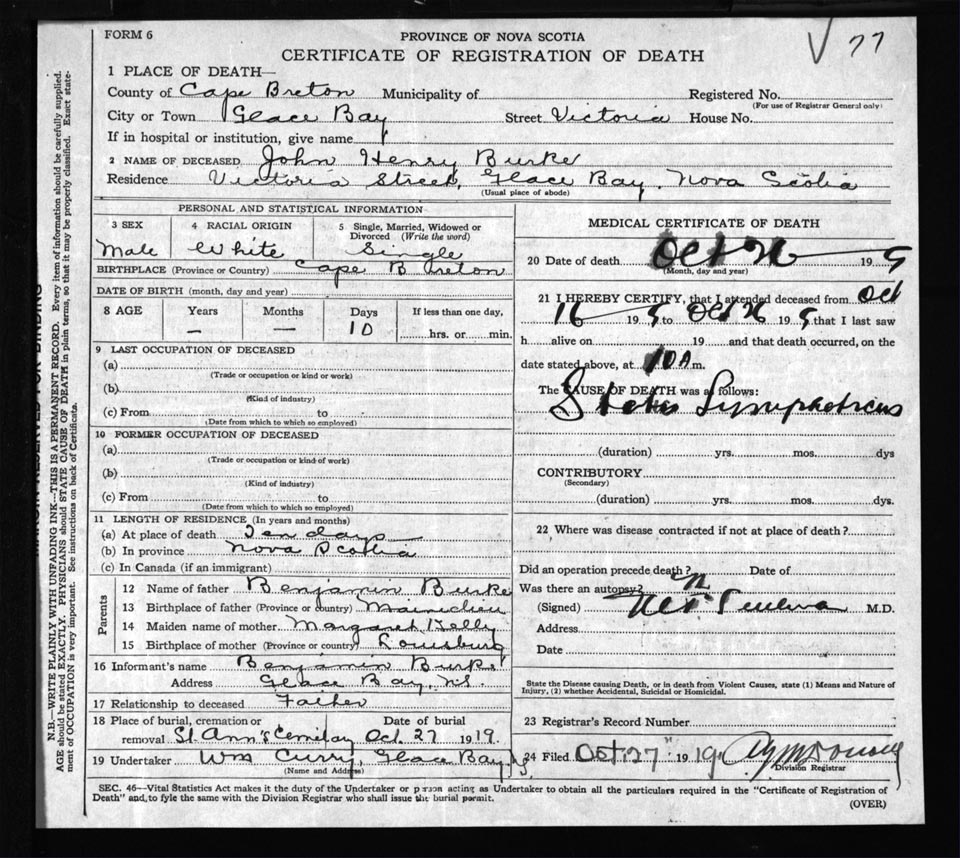 FORM 6
PROVINCE OF NOVA SCOTIA
77
CERTIFICATE OF REGISTRATION OF DEATH
1 PLACE OF DEATH—
County of Cape Breton Municipality of Registered No.
(For use of Registrar General only)
City or Town Glace Bay Street Victoria House No.
If in hospital or institution, give name
2 NAME OF DECEASED John Henry Burke
Residence Victoria Street, Glace Bay, Nova Scotia
(Usual place of abode)
PERSONAL AND STATISTICAL INFORMATION
3 SEX 4 RACIAL ORIGIN 5 Single, Married, Widowed or Divorced (Write the word)
Male White Single
BIRTHPLACE (Province or Country) Cape Breton
DATE OF BIRTH (month, day and year)
8 AGE Years Months Days If less than one day,
— — 10 hrs. or min.
9 LAST OCCUPATION OF DECEASED
(a)
(Trade or occupation or kind or work)
(b)
(Kind of industry)
(c) From to
(Date from which to which so employed)
10 FORMER OCCUPATION OF DECEASED
(a)
(Trade or occupation or kind of work)
(b)
(Kind of industry)
(c) From to
(Date from which to which so employed)
11 LENGTH OF RESIDENCE (In years and months)
(a) At place of death Ten days
(b) In province Nova Scotia
(c) In Canada (if an immigrant)
Parents
12 Name of father Benjamin Burke
13 Birthplace of father (Province or country)
14 Maiden name of mother Margaret Kelly
15 Birthplace of mother (Province or country) Louisburg
16 Informant's name Benjamin Burke
Address Glace Bay, N.S.
17 Relationship to deceased Father
18 Place of burial, cremation or removal St. Ann's Cemetary Date of burial Oct. 27 1919.
19 Undertaker Wm Curry, Glace Bay, N.S.
(Name and Address)
MEDICAL CERTIFICATE OF DEATH
20 Date of death Oct 26 19 9
(Month, day and year)
21 I HEREBY CERTIFY, that I attended deceased from Oct
16 19 9 to Oct 26 19 9 that I last saw
h alive on 19 and that death occurred, on the
date stated above, at 10 A m.
The CAUSE OF DEATH was as follows:
Status Lymphaticus
(duration) yrs. mos. dys
CONTRIBUTORY
(Secondary)
(duration) yrs. mos. dys.
22 Where was disease contracted if not at place of death?
Did an operation precede death? Date of
Was there an autopsy? n
(Signed) M.D.
Address
Date
State the Disease causing Death, or in death from Violent Causes, state (1) Means and Nature of
Injury, (2) whether Accidental, Suicidal or Homicidal.
23 Registrar's Record Number
24 Filed Oct 27" 1919
Division Registrar
SEC. 46—Vital Statistics Act makes it the duty of the Undertaker or person acting as Undertaker to obtain all the particulars required in the "Certificate of Registration of
Death" and to fyle the same with the Division Registrar who shall issue the burial permit.
(OVER)
MARGIN RESERVED FOR BINDING
N.B.—WRITE PLAINLY WITH UNFADING INK—THIS IS A PERMANENT RECORD. Every item of information should be carefully supplied.
AGE should be stated EXACTLY. PHYSICIANS should STATE CAUSE OF DEATH in plain terms, so that it may be properly classified. Exact state-
ment of OCCUPATION is very important. See instructions on back of Certificate.